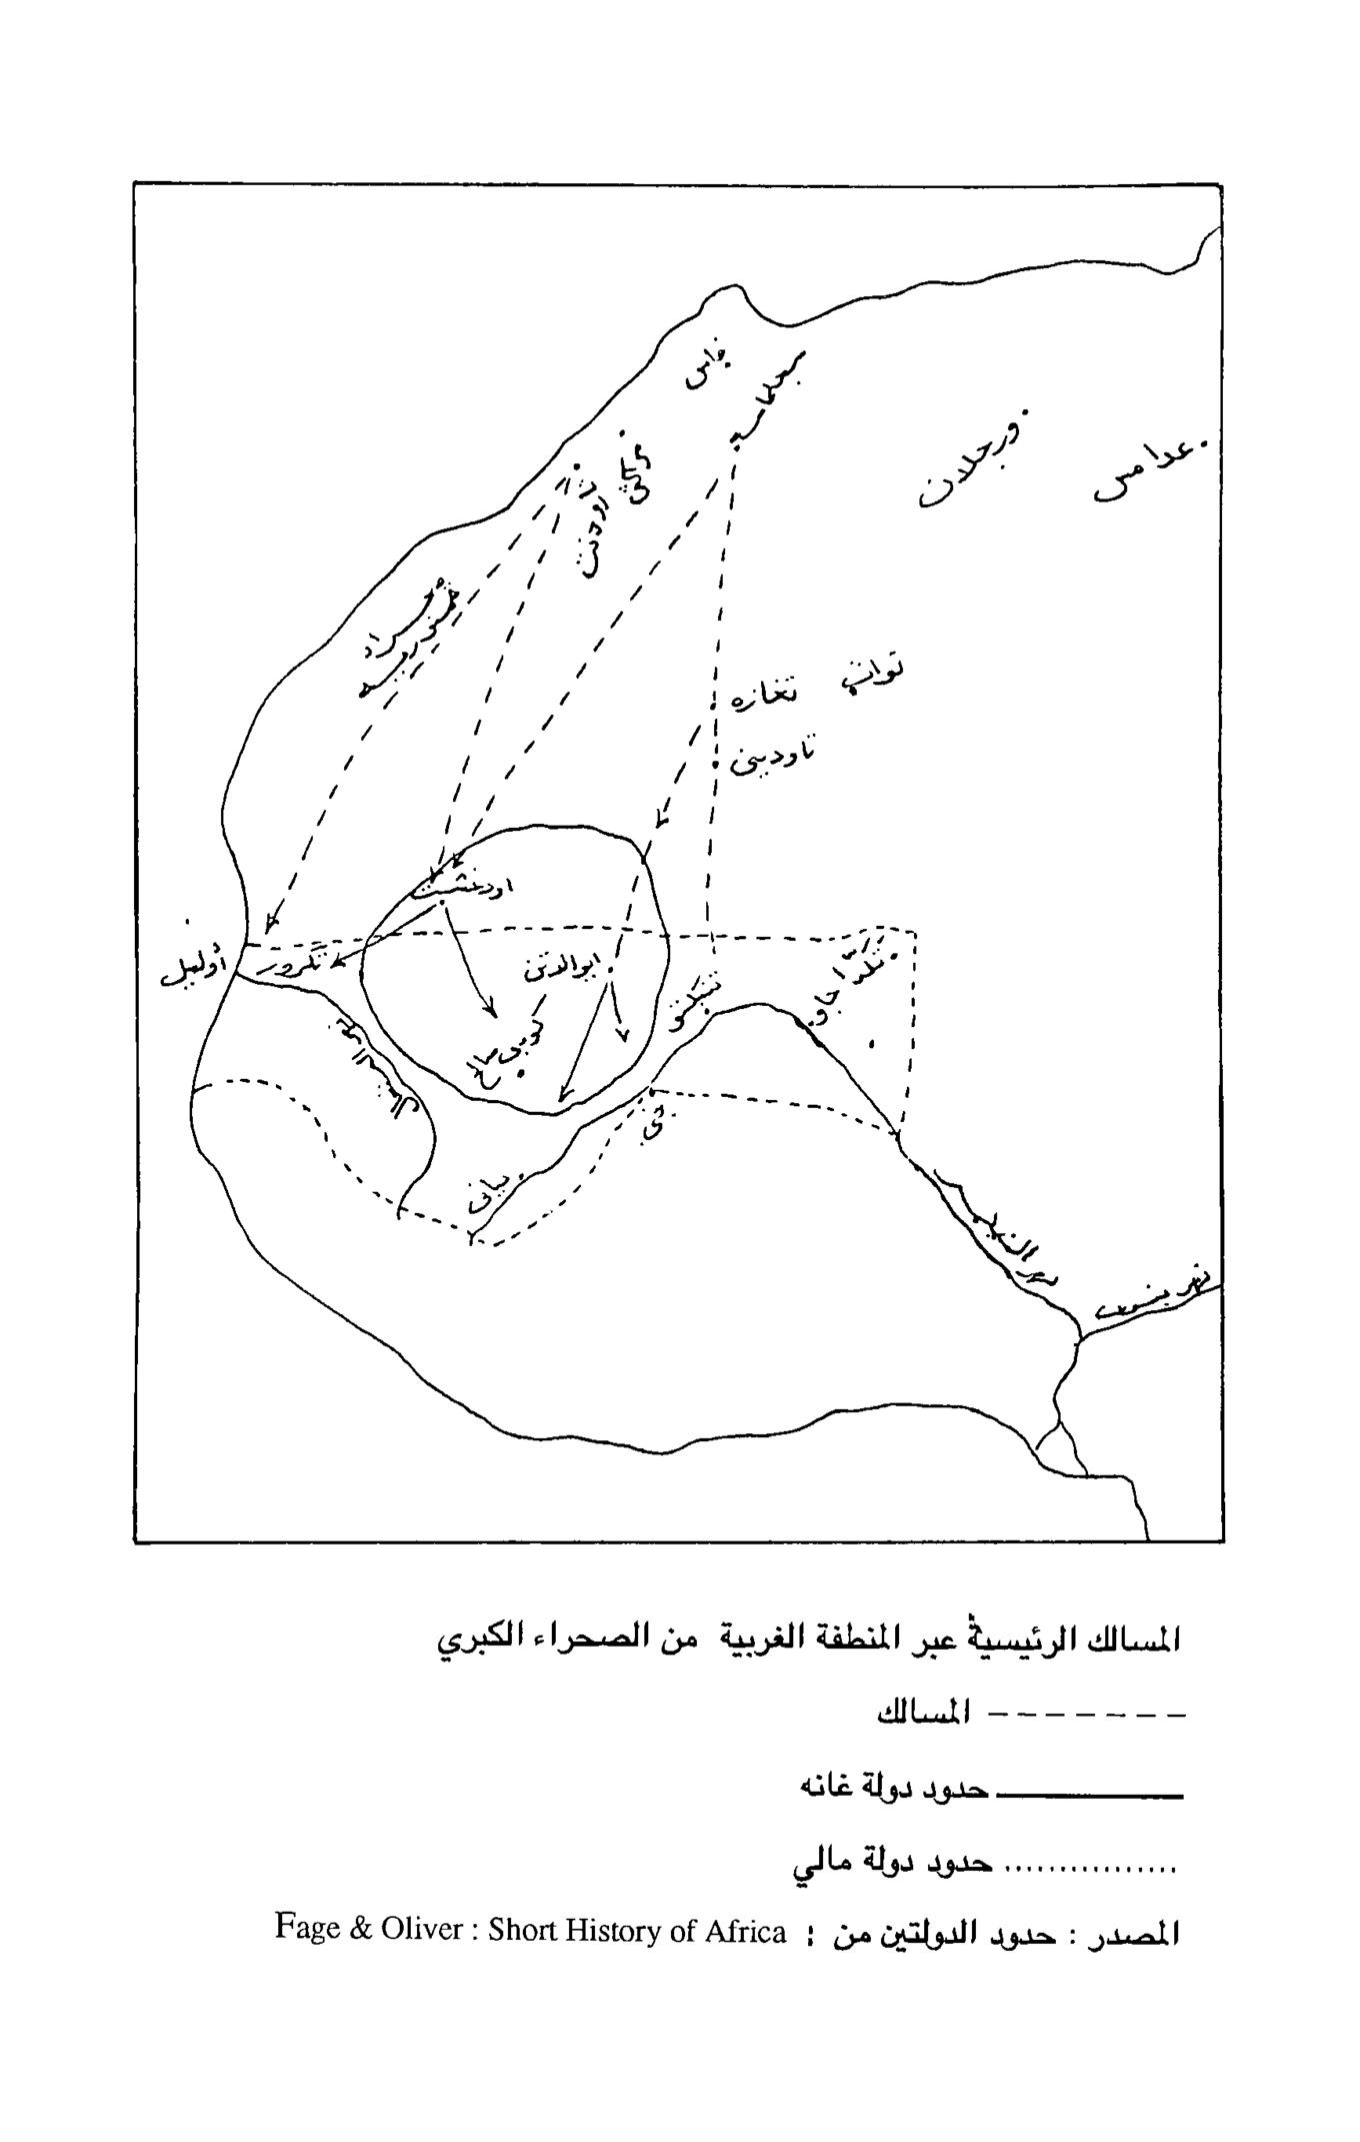 فاس
سجلماسه
ورجلان
غدامس
توات
تغازه
تاوديني
اودغشت
أوليل
تكرور
ايوالاتن
كومبي صالح
تنبكتو
جاو
جني
نياني
نهر النيجر
المسالك الرئيسية عبر المنطقة الغربية من الصحراء الكبري
المسالك
حدود دولة غانه
حدود دولة مالي
المصدر : حدود الدولتين من : Fage & Oliver : Short History of Africa